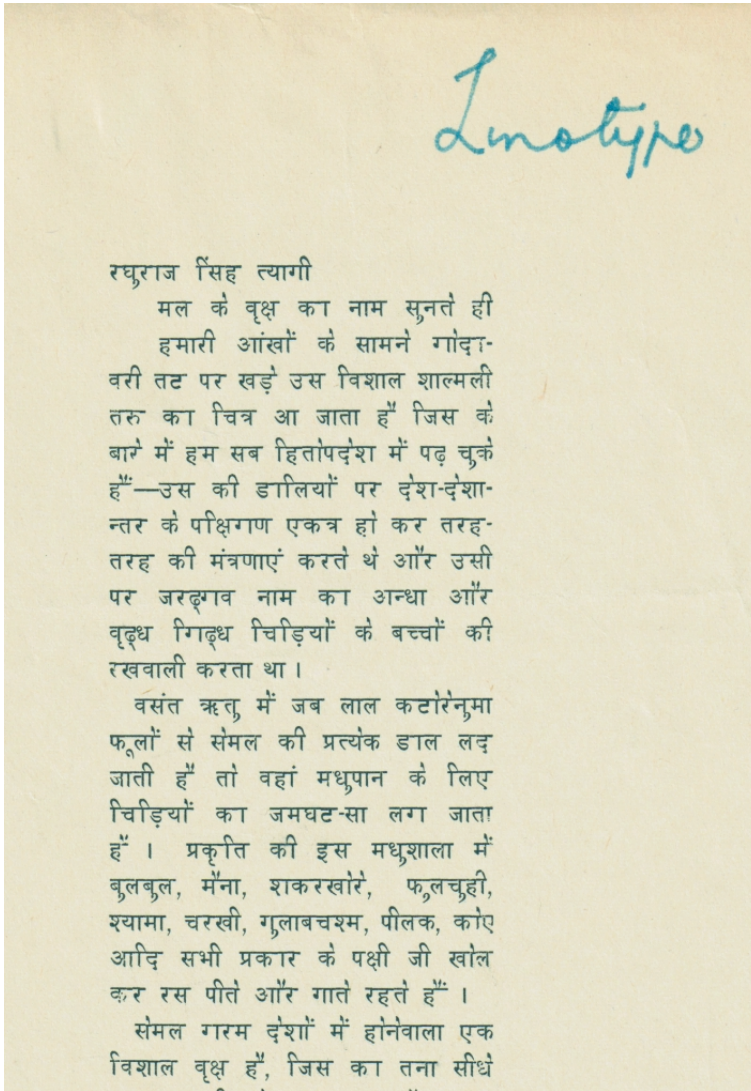 Linotype
रघुराज सिंह त्यागी
मल के वृक्ष का नाम सुनते ही
हमारी आंखों के सामने गोदा-
वरी तट पर खड़े उस विशाल शाल्मली
तरु का चित्र आ जाता है जिस के
बारे में हम सब हितोपदेश में पढ़ चुके
हैं—उस की डालियों पर देश-देशा-
न्तर के पक्षिगण एकत्र हो कर तरह-
तरह की मंत्रणाएं करते थे और उसी
पर जरद्गव नाम का अन्धा और
वृद्ध गिद्ध चिड़ियों के बच्चों की
रखवाली करता था।
वसंत ऋतु में जब लाल कटोरेनुमा
फूलों से सेमल की प्रत्येक डाल लद
जाती है तो वहां मधुपान के लिए
चिड़ियों का जमघट-सा लग जाता
है। प्रकृति की इस मधुशाला में
बुलबुल, मैना, शकरखोरे, फुलचुही,
श्यामा, चरखी, गुलाबचश्म, पीलक, कौए
आदि सभी प्रकार के पक्षी जी खोल
कर रस पीते और गाते रहते हैं।
सेमल गरम देशों में होनेवाला एक
विशाल वृक्ष है, जिस का तना सीधे